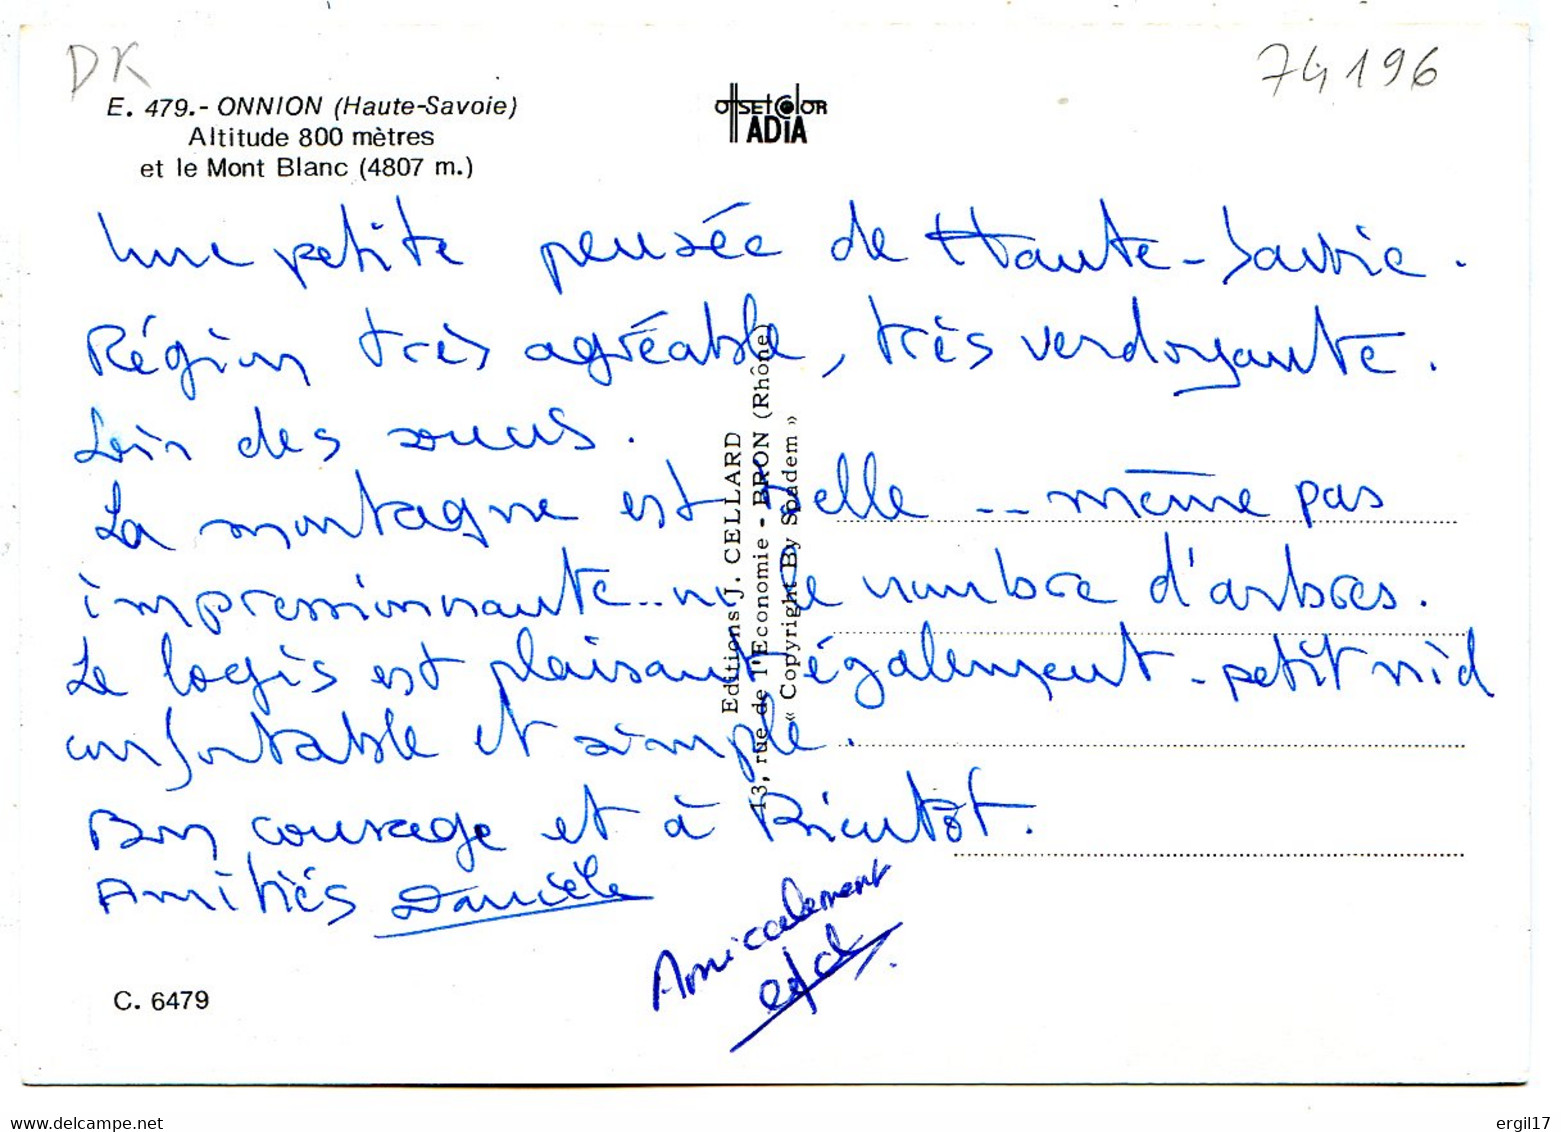 DK
74196
E. 479.- ONNION (Haute-Savoie)
Altitude 800 mètres
et le Mont Blanc (4807 m.)
OFFSET COLOR
ADIA
Une petite pensée de Haute-Savoie.
Région très agréable, très verdoyante.
Loin des soucis.
La montagne est belle -- même pas
impressionnante.. vu le nombre d'arbres.
Le logis est plaisant également - petit nid
confortable et simple.
Bon courage et à Bientôt.
Amitiés Danièle
Amicalement
Editions J. CELLARD
13, rue de l'Economie - BRON (Rhône)
« Copyright By Spadem »
C. 6479
www.delcampe.net
ergil17